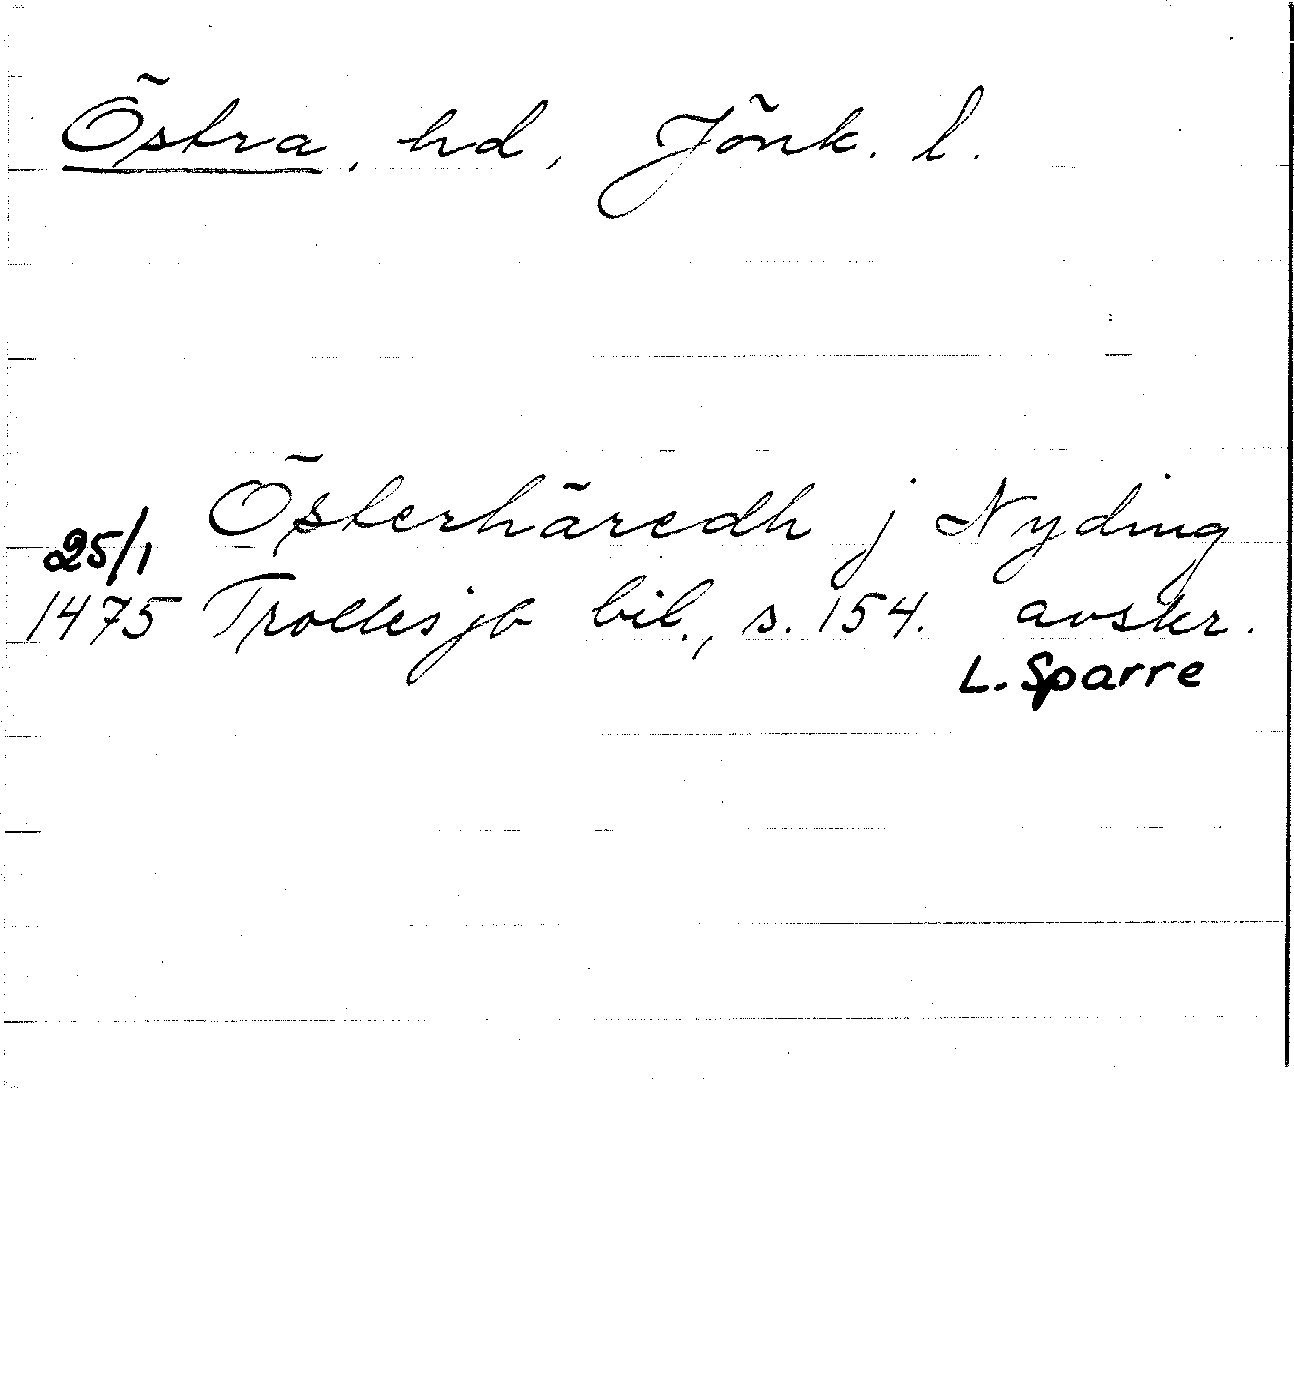 Östra, hd, Jönk. l.
Österhäredh j Nyding
25/1
1475 Trolles jb bil., s. 154. avskr.
L. Sparre